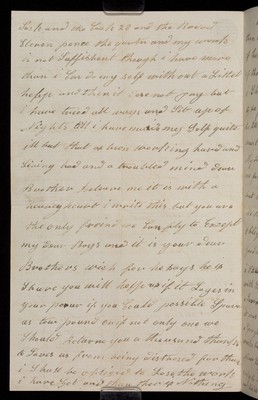 and the Last 28 and the Bacond
Eleven pence the quarter and my work
is not Suffishent though i have more
than i Can do my self with out a Little
help and then it does not pay but
i have tried all ways and Sit up at
Nights till i have made my Self quite
ill but that as been working hard and
living bad and a troubled mind dear
Brother beleave me it is with a
heavey heart i write this but you are
the only freind we Can fly to Except
my dear Boys and it is your dear
Brothers wich for he says he is
Shure you will help us if it Layes in
your power if you Could possible Spare
us ten pound or if not only one we
Should return you a thousand thanks
to Save us from being distressed for then
i Shall be obliged to Lose the work
i have Got and then their is Nothing